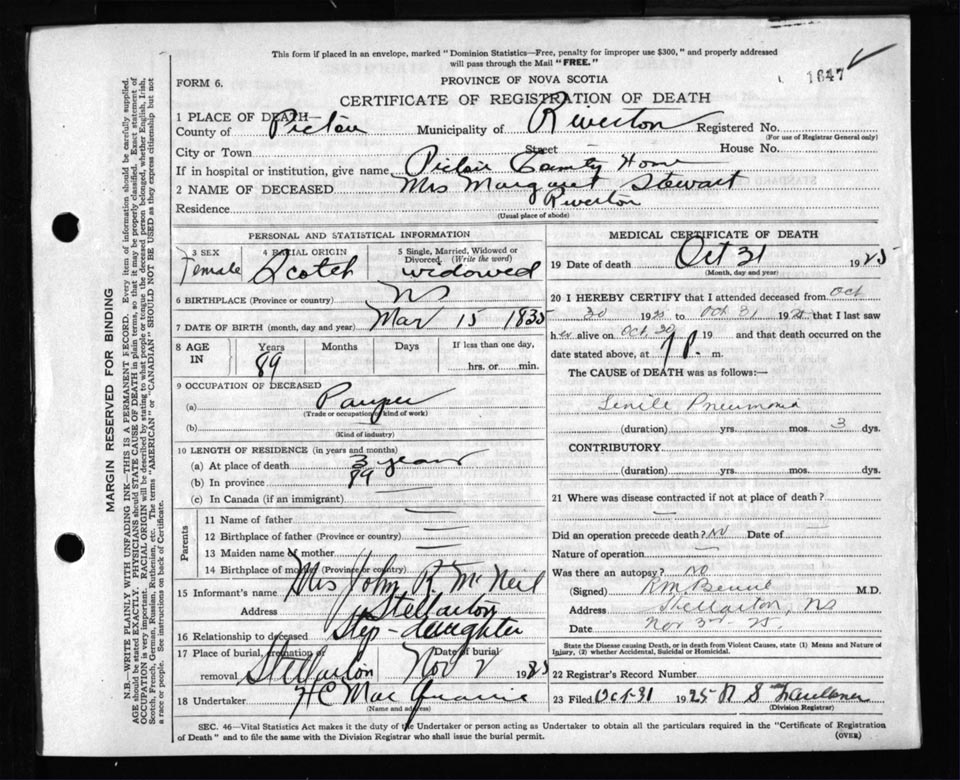 This form if placed in an envelope, marked "Dominion Statistics—Free, penalty for improper use $300," and properly addressed
will pass through the Mail "FREE."
1647
FORM 6.
PROVINCE OF NOVA SCOTIA
CERTIFICATE OF REGISTRATION OF DEATH
1 PLACE OF DEATH—
County of Pictou Municipality of Riverton Registered No.
(For use of Registrar General only)
City or Town Street House No.
If in hospital or institution, give name Pictou County Home
2 NAME OF DECEASED Mrs Margaret Stewart
Residence Riverton
(Usual place of abode)
PERSONAL AND STATISTICAL INFORMATION
3 SEX Female
4 RACIAL ORIGIN Scotch
5 Single, Married, Widowed or Divorced. (Write the word) widowed
6 BIRTHPLACE (Province or country) NS
7 DATE OF BIRTH (month, day and year) Mar 15 1835
8 AGE IN Years 89 Months Days If less than one day, hrs. or min.
9 OCCUPATION OF DECEASED
(a) Pauper
(Trade or occupation or kind of work)
(b)
(Kind of industry)
10 LENGTH OF RESIDENCE (in years and months)
(a) At place of death 3 years
(b) In province 89
(c) In Canada (if an immigrant)
Parents
11 Name of father
12 Birthplace of father (Province or country)
13 Maiden name of mother
14 Birthplace of mother (Province or country)
15 Informant's name Mrs John R McNeil
Address Stellarton
16 Relationship to deceased Step-daughter
17 Place of burial, cremation or removal Stellarton Date of burial Nov 2 1925
18 Undertaker H C Mac Quarrie
(Name and address)
MEDICAL CERTIFICATE OF DEATH
19 Date of death Oct 31 1925
(Month, day and year)
20 I HEREBY CERTIFY that I attended deceased from Oct
30 1925 to Oct 31 1925 that I last saw
her alive on Oct 30 19 and that death occurred on
date stated above, at 9 P. m.
The CAUSE of DEATH was as follows:—
Senile Pneumonia
(duration) yrs. mos. 3 dys.
CONTRIBUTORY
(duration) yrs. mos. dys.
21 Where was disease contracted if not at place of death?
Did an operation precede death? No Date of
Nature of operation
Was there an autopsy? No
(Signed) M.D.
Address Stellarton, NS
Date Nov 3rd 25.
State the Disease causing Death, or in death from Violent Causes, state (1) Means and Nature of
Injury, (2) whether Accidental, Suicidal or Homicidal.
22 Registrar's Record Number
23 Filed Oct 31 1925 S Faulkner
(Division Registrar)
SEC. 46—Vital Statistics Act makes it the duty of the Undertaker or person acting as Undertaker to obtain all the particulars required in the "Certificate of Registration
of Death" and to file the same with the Division Registrar who shall issue the burial permit.
(OVER)
MARGIN RESERVED FOR BINDING
N.B.—WRITE PLAINLY WITH UNFADING INK—THIS IS A PERMANENT RECORD. Every item of information should be carefully supplied.
AGE should be stated EXACTLY. PHYSICIANS should STATE CAUSE OF DEATH in plain terms, so that it may be properly classified. Exact statement of
OCCUPATION is very important. RACIAL ORIGIN will be described by stating to what people or tongue the deceased person belonged, whether English, Irish,
Scotch, French, German, Russian, Ruthenian, etc. The terms "AMERICAN" or "CANADIAN" SHOULD NOT BE USED as they express citizenship but not
a race or people. See instructions on back of Certificate.